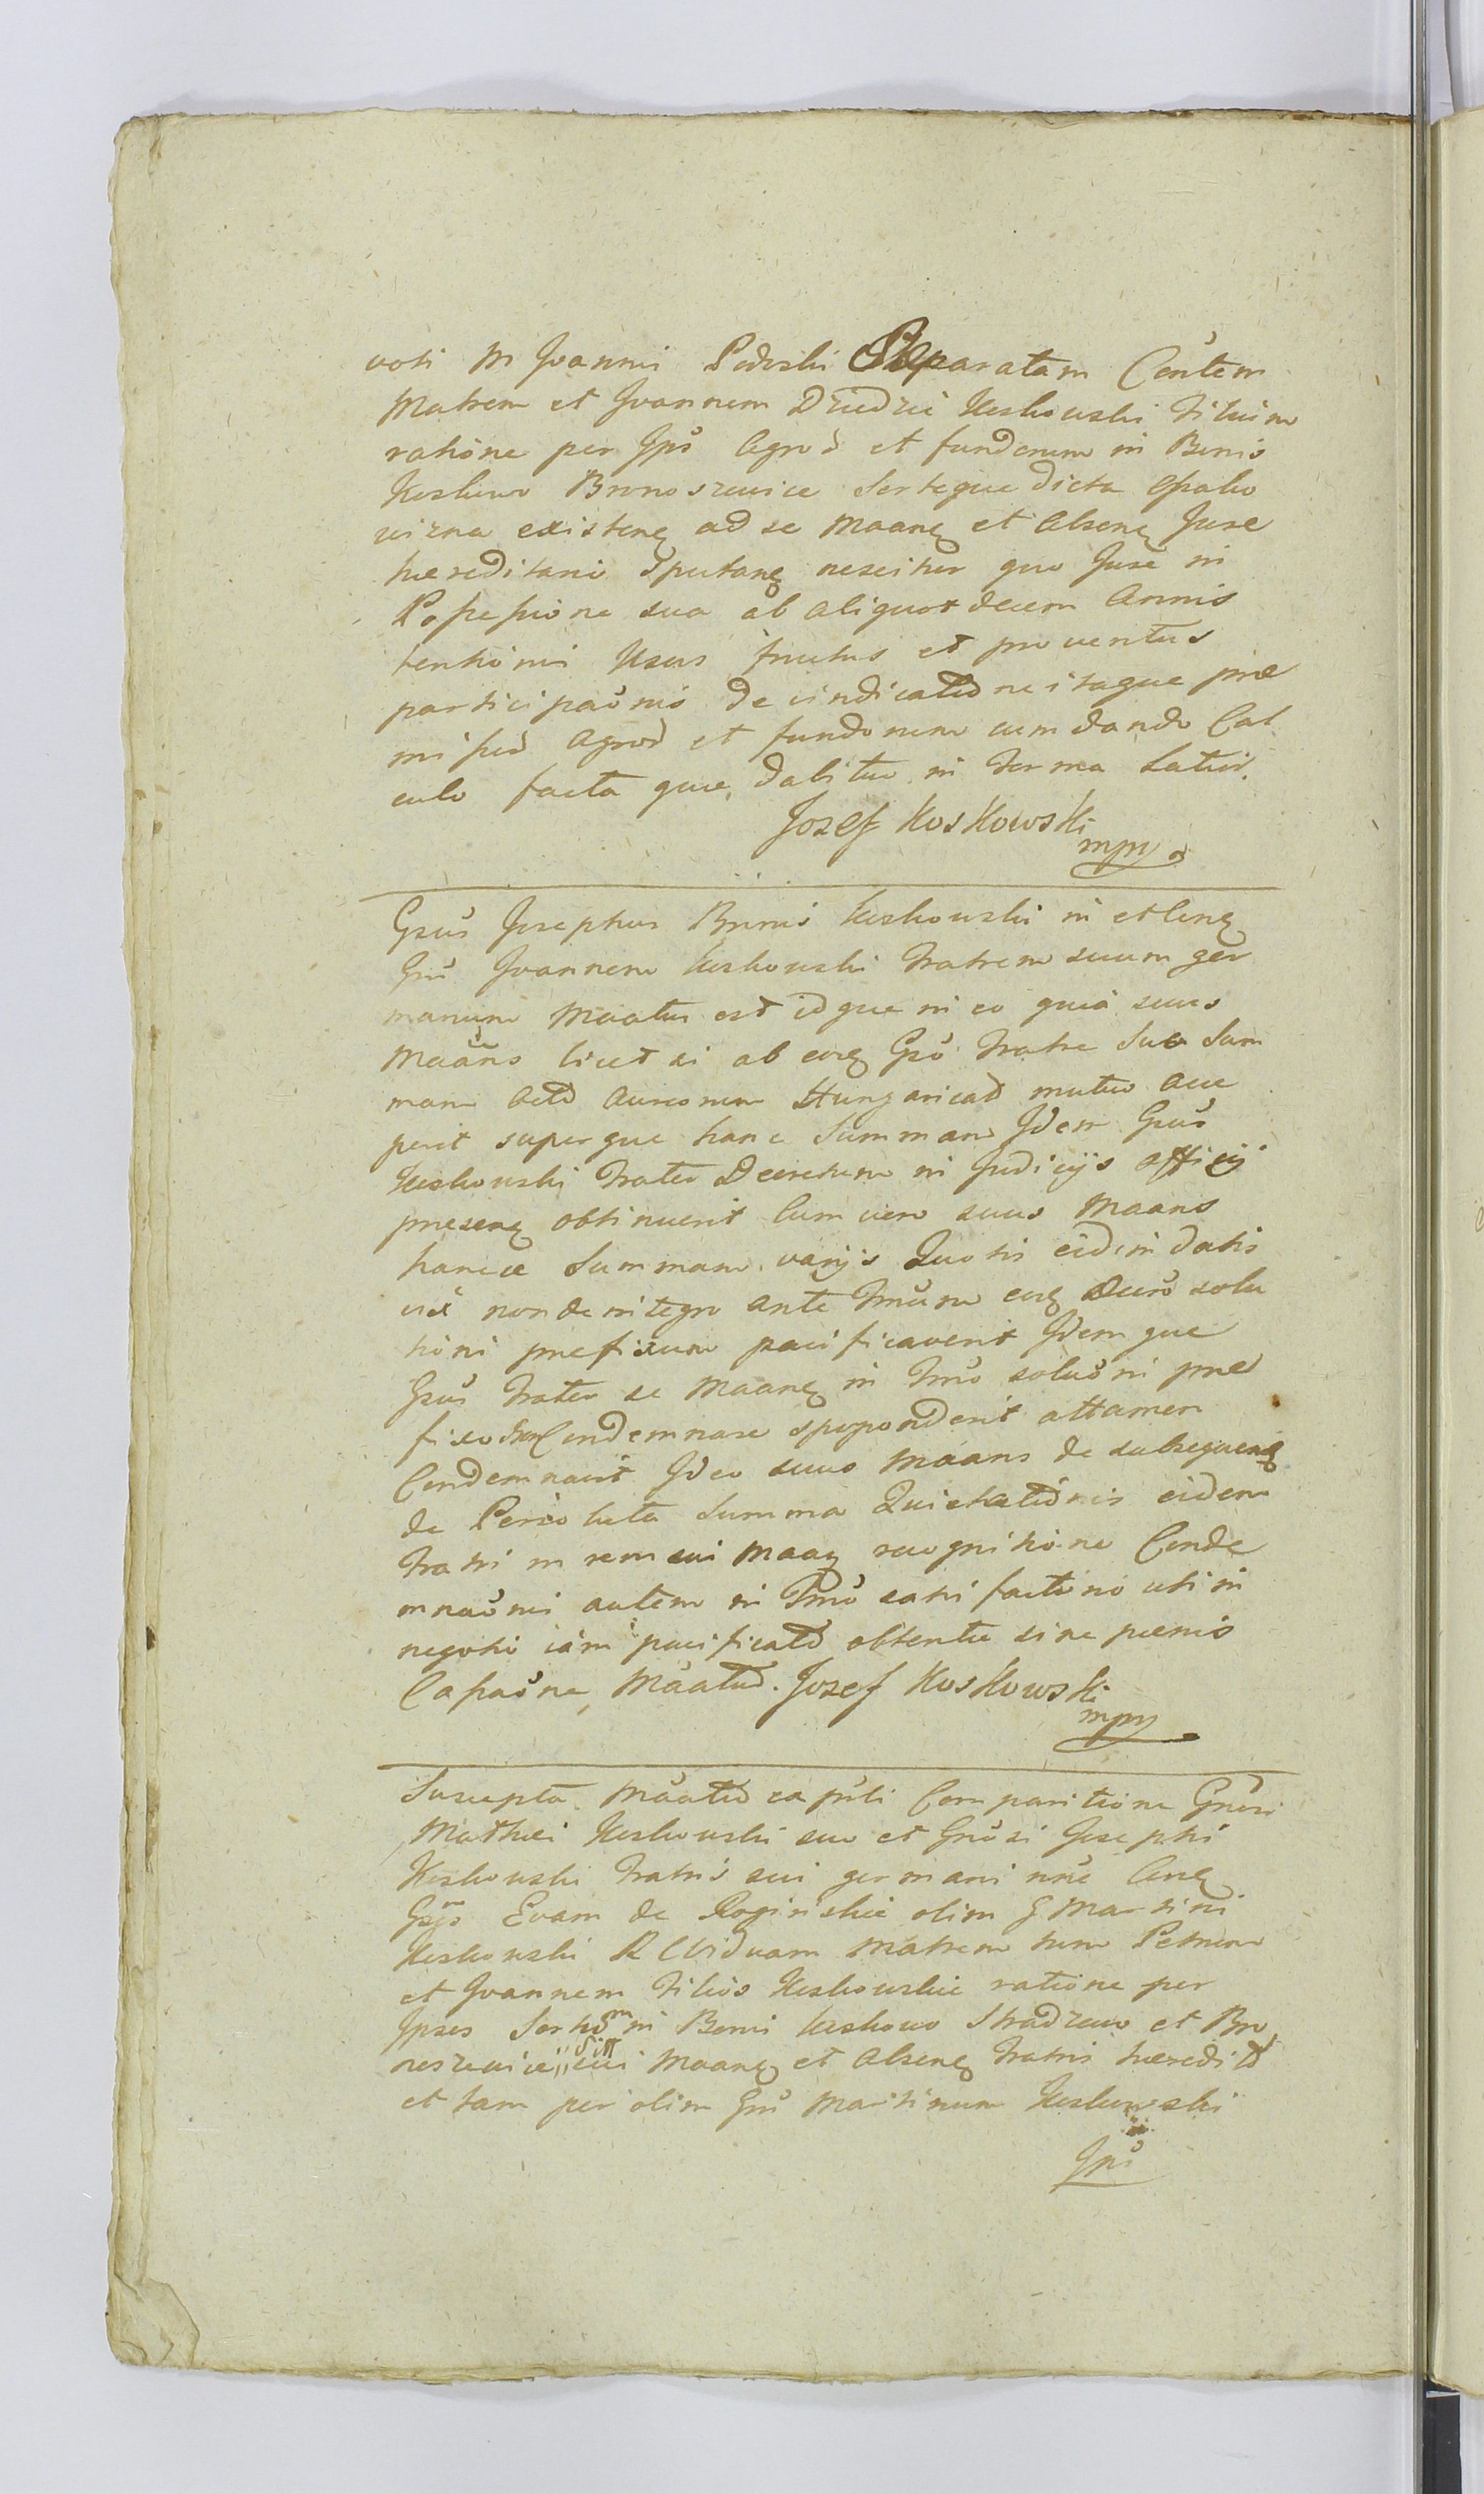 voti M Joannis Podoski Separatam Contem
Matrem et Joannem Dziedzic Koskowski Filium
ratione per Ipsos Agros et fundorum in Bonis
Koskowo Bronoszewice Sorteque dicta Opalo
wizna existen ad se Maan et Absen Jure
hereditario Sputan nescitur quo Jure in
Possessione sua ab aliquot decem Annis
tentionis Usus fructus et proventus
participaonis de vindicatione itaque præ
missor Agror et fundorum cum dando Cal
culo facta quæ, dabitur in Forma Latiori.
Josef Koskowski
mpp
Gsus Josephus Bronis Koskowski in et Con
Gsum Joannem Koskowski Fratrem suum ger
manum Maatus est idque in eo quia suus
Maans licet si ab eoq Gso Fratre Suo Sum
mam Aureorum Hungarical mutuo acce
perit superque hanc Summam Idem Gsus
Koskowski Frater Decretum in Judicijs Officij
presen obtinuerit Cum vero suus Maans
hancce Summam varijs Quotis eidem datis
uti non de integro ante Tmum eoq Decro solu
tioni prefixum pacificaverit Idemque
Gsus Frater se Maan in Tmo soluoni præ
fixo non Condemnare spoponderit attamen
Condemnavit Ideo suus Maans de subsequen
de Persoluta Summa Quietationis eidem
Fratri in rem sui Maan recognitione Conde
mnaonis autem in Tmo satisfactionis uti in
negotio iam pacificato obtentæ sine pœnis
Cassaone, Maatus. Josef Koskowski
mpp
Suscepta Maatus ea pnti Comparitione Gnosi
Mathei Koskowski suo et Gnosi Josephi
Koskowski Fratris sui germani nne Con
Gsos Evam de Rogińskie olim G Martini
Koskowski R Viduam Matrem tum Petrum
et Joannem Filios Koskowskie ratione per
Ipsos Sortiom in Bonis Koskowo Stradzewo et Bro
noszewice sitt sui Maan et Absen Fratris heredit
et tam per olim Gsum Martinum Koskowski
Ipsos